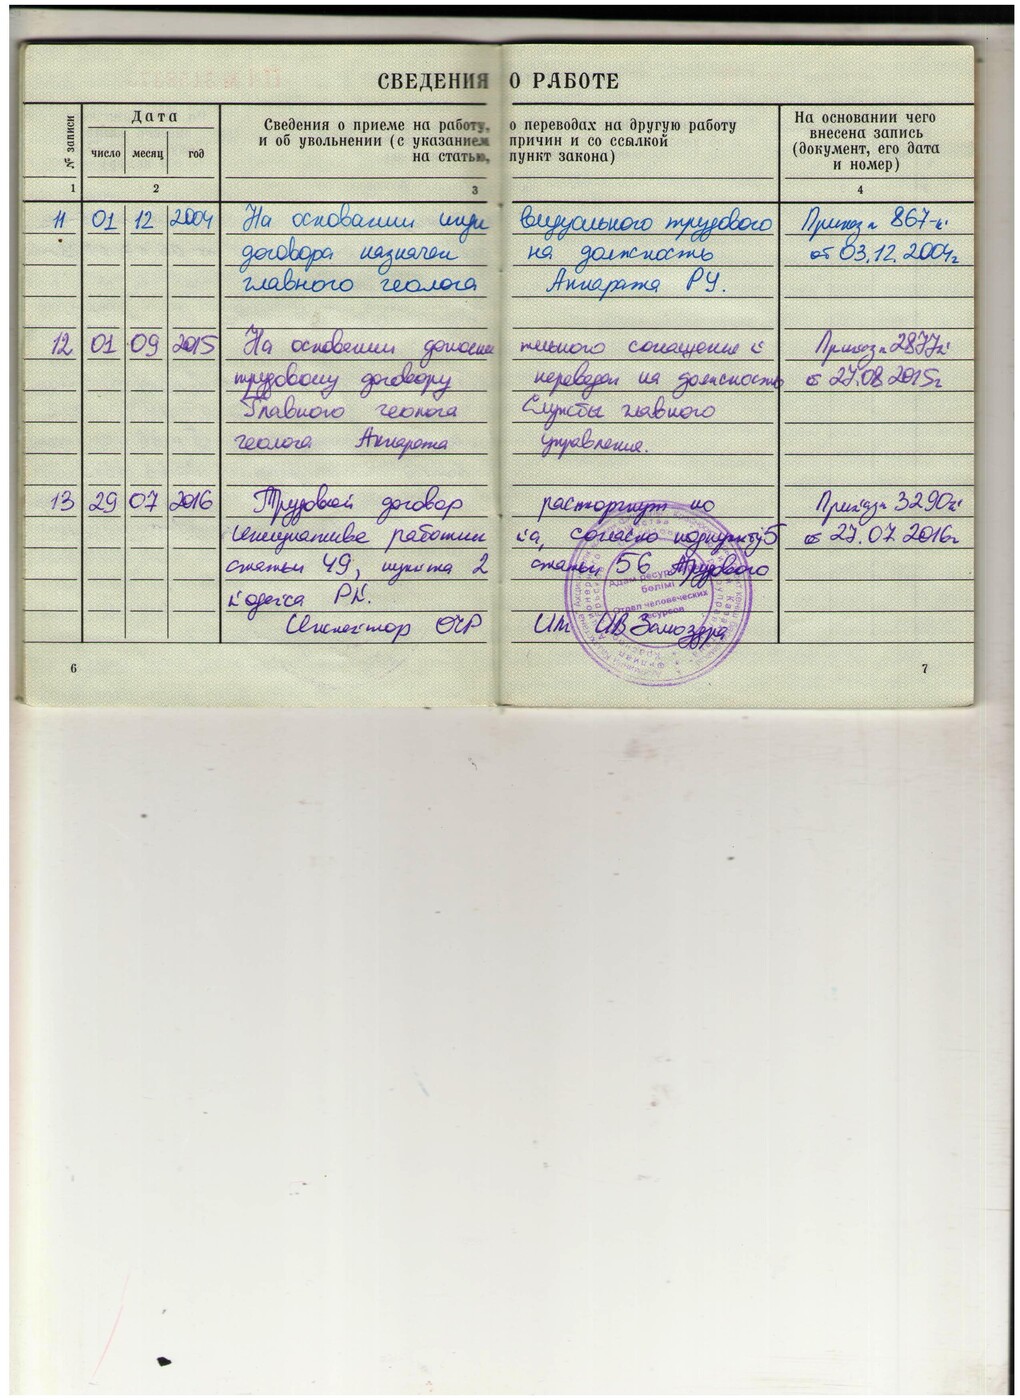 СВЕДЕНИЯ О РАБОТЕ
№ записи
Дата
число месяц год
Сведения о приеме на работу, о переводах на другую работу
и об увольнении (с указанием причин и со ссылкой
на статью, пункт закона)
На основании чего
внесена запись
(документ, его дата
и номер)
1 2 3 4
11 01 12 2004 На основании индивидуального трудового Приказ № 867-к
договора назначен на должность от 03.12.2004г
главного геолога Аппарата РУ.
12 01 09 2015 На основании дополнительного соглашение к Приказ № 2877к
трудовому договору переведен на должность от 27.08 2015г
Главного геолога Службы главного
геолога Аппарата управления.
13 29 07 2016 Трудовой договор расторгнут по Приказ 3290к
инициативе работника, согласно подпункту 5 от 27.07 2016г
статьи 49, пункта 2 статьи 56 Трудового
Кодекса РК.
Инспектор ОЧР ИВ Замоздра
Адам ресурс
бөлімі
Отдел человеческих
ресурсов
6 7